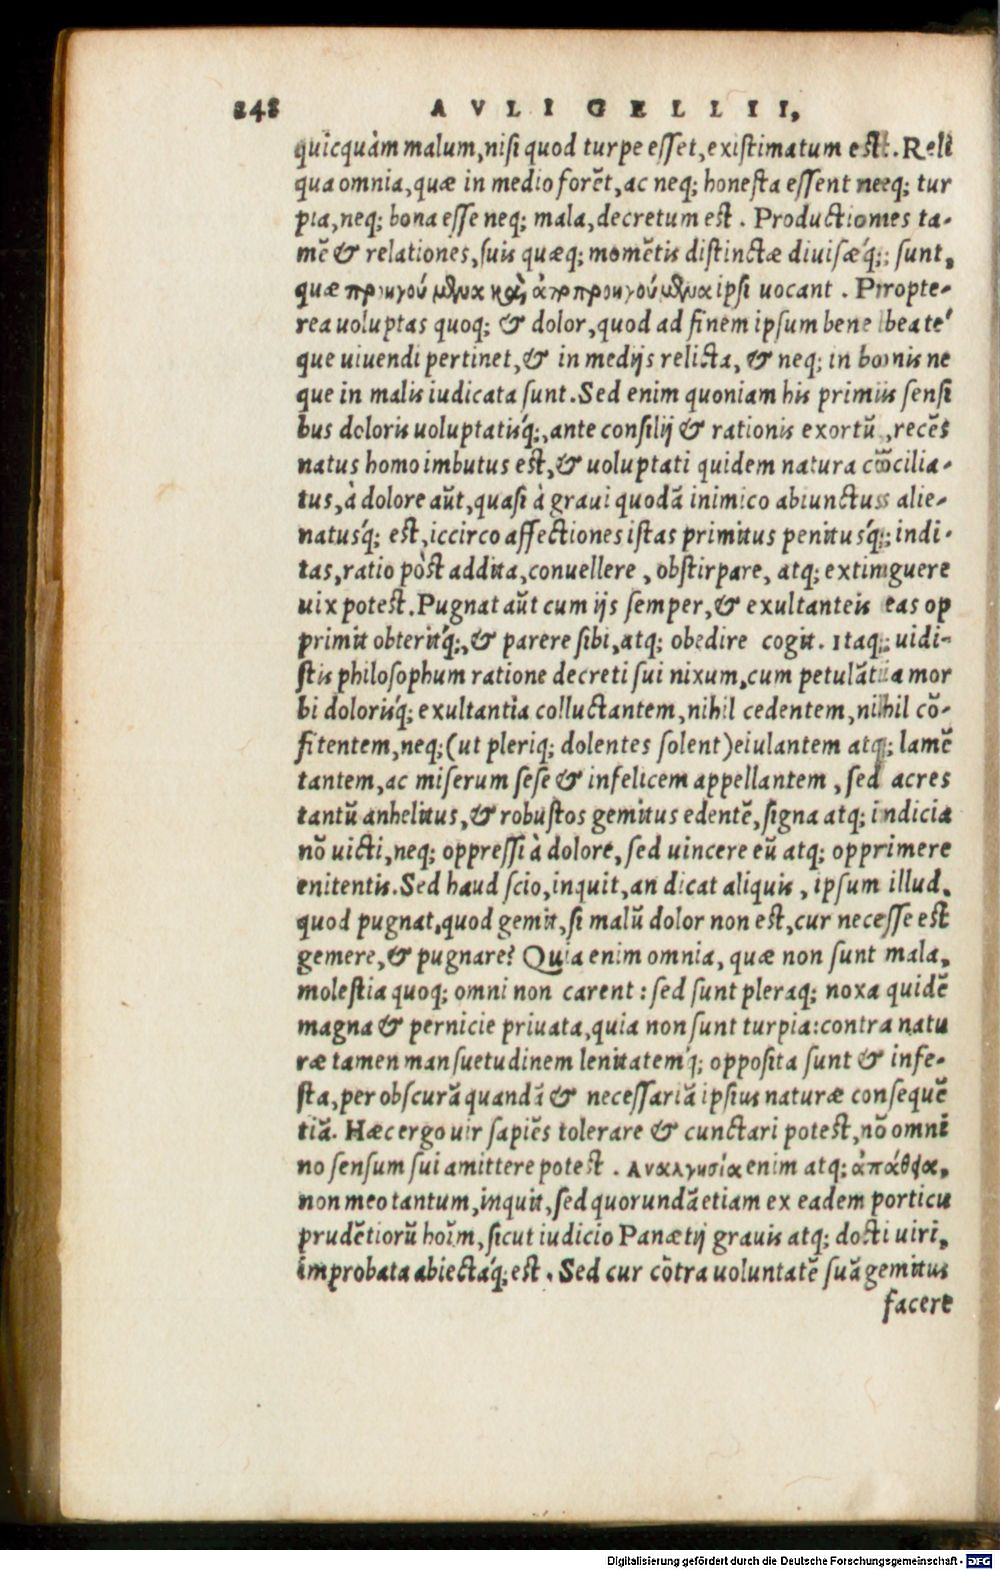 242 AVLI GELLII,
quicquàm malum, nisi quod turpe esset, existimatum est. Reli
qua omnia, quæ in medio forẽt, ac neq; honesta essent neq; tur
pia, neq; bona esse neq; mala, decretum est. Productiones ta-
mẽ & relationes, suis quæq; momẽtis distinctæ diuisæq́; sunt,
quæ προηγούμενα καὶ ἀποπροηγούμενα ipsi uocant. Propte-
rea uoluptas quoq; & dolor, quod ad finem ipsum bene beate'
que uiuendi pertinet, & in medijs relicta, & neq; in bonis ne
que in malis iudicata sunt. Sed enim quoniam his primis sensi
bus doloris uoluptatisq́;, ante consilij & rationis exortũ, recẽs
natus homo imbutus est, & uoluptati quidem natura cõcilia-
tus, à dolore aũt, quasi à graui quodã inimico abiunctus alie-
natusq́; est, iccirco affectiones istas primitus penitusq́; indi-
tas, ratio pòst addita, conuellere, obstirpare, atq; extinguere
uix potest. Pugnat aũt cum ijs semper, & exultanteis eas op
primit obteritq́;, & parere sibi, atq; obedire cogit. Itaq; uidi-
stis philosophum ratione decreti sui nixum, cum petulãtia mor
bi dolorisq́; exultantia colluctantem, nihil cedentem, nihil cõ-
fitentem, neq; (ut pleriq; dolentes solent) eiulantem atq; lamẽ
tantem, ac miserum sese & infelicem appellantem, sed acres
tantũ anhelitus, & robustos gemitus edentẽ, signa atq; indicia
nõ uicti, neq; oppressi à dolore, sed uincere eũ atq; opprimere
enitentis. Sed haud scio, inquit, an dicat aliquis, ipsum illud,
quod pugnat, quod gemit, si malũ dolor non est, cur necesse est
gemere, & pugnare? Quia enim omnia, quæ non sunt mala,
molestia quoq; omni non carent: sed sunt pleraq; noxa quidẽ
magna & pernicie priuata, quia non sunt turpia: contra natu
ræ tamen mansuetudinem lenitatemq́; opposita sunt & infe-
sta, per obscurã quandã & necessariã ipsius naturæ consequẽ
tiã. Hæc ergo uir sapiẽs tolerare & cunctari potest, nõ omni
no sensum sui amittere potest. Αναλγησία enim atq; ἀπάθεια,
non meo tantum, inquit, sed quorundã etiam ex eadem porticu
prudẽtiorũ hoĩm, sicut iudicio Panætij grauis atq; docti uiri,
improbata abiectaq́; est. Sed cur cõtra uoluntatẽ suã gemitus
facere
Digitalisierung gefördert durch die Deutsche Forschungsgemeinschaft - DFG